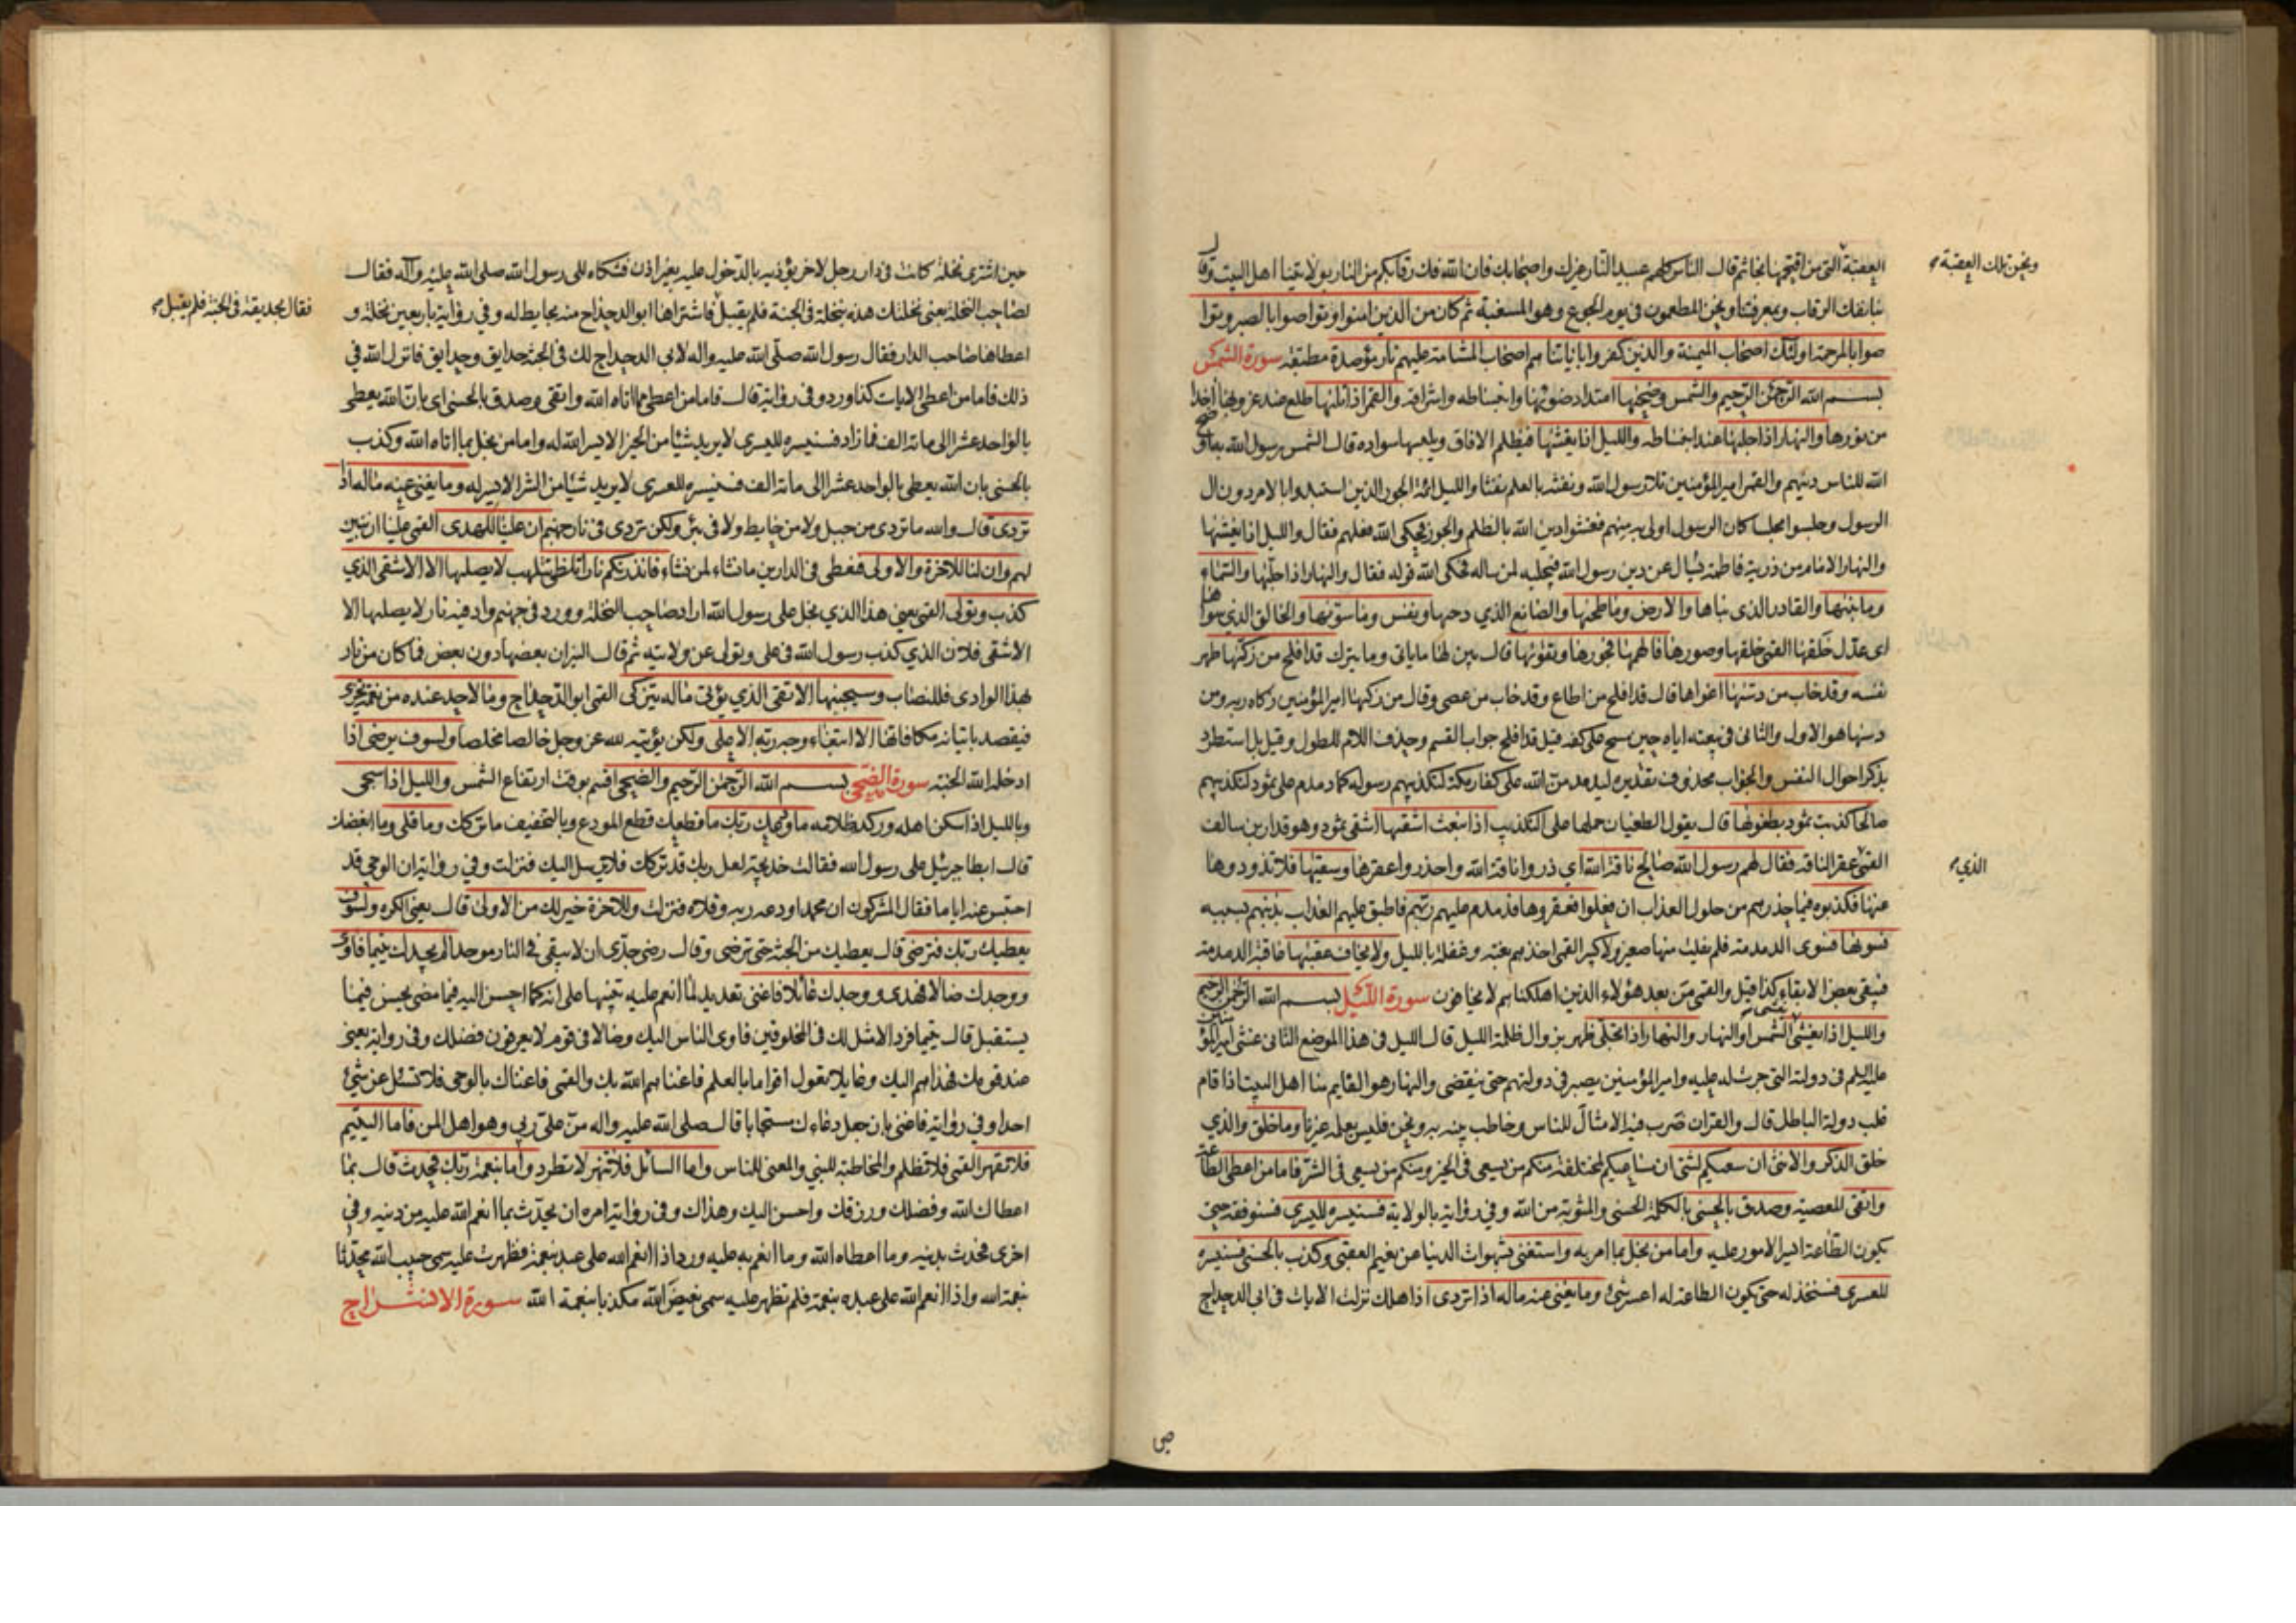 العقبة التى من اقتحمها نجا ثم قال الناس كلهم عبيد النار غيرك واصحابك فان الله فك رقابكم من النار بولايتنا اهل البيت وقال
ونحن تلك العقبة
بنا تفك الرقاب وبمعرفتنا ونحن المطعمون فى يوم الجوع وهو المسغبة ثم كان من الذين امنوا وتواصوا بالصبر وتوا
صوا بالمرحمة اولئك اصحاب الميمنة والذين كفروا باياتنا هم اصحاب المشامة عليهم نار مؤصدة مطبقة سورة الشمس
بسم الله الرحمن الرحيم والشمس وضحيها امتداد ضوئها وانبساطه واشراقه والقمر اذا تليها طلع عند غروبها اخذا
من نورها والنهار اذا جليها عند انبساطه والليل اذا يغشيها فيظلم الافاق ويلبسها سواده قال الشمس رسول الله به اوضح
الله للناس دينهم والقمر امير المؤمنين تلا رسول الله ونفثه بالعلم نفثا والليل ائمة الجور الذين استبدوا بالامر دون ال
الرسول وجلسوا مجلسا كان الرسول اولى به منهم فغشوا دين الله بالظلم والجور فحكى الله فعلهم فقال والليل اذا يغشيها
والنهار الامام من ذرية فاطمة يسال عن دين رسول الله فيجليه لمن ساله فحكى الله قوله فقال والنهار اذا جليها والسماء
وما بنيها والقادر الذى بناها والارض وما طحيها والصانع الذي دحيها ونفس وما سويها والخالق الذي سواها
اى عدل خلقها القمى خلقها وصورها فالهمها فجورها وتقويها قال بين لها ما ياتى وما يترك قد افلح من زكيها طهر
نفسه وقد خاب من دسيها اغواها قال قد افلح من اطاع وقد خاب من عصى وقال من زكيها امير المؤمنين زكاه ربه ومن
دسيها هو الاول والثانى فى بيعته اياه حين مسح على كفه قيل قد افلح جواب القسم وحذف اللام للطول وقيل بل استطرد
بذكر احوال النفس والجواب محذوف تقديره ليدمدمن الله على كفار مكة لتكذيبهم رسوله كما دمدم على ثمود لتكذيبهم
صالحا كذبت ثمود بطغويها قال يقول الطغيان حملها على التكذيب اذ انبعث اشقيها اشقى ثمود وهو قدار بن سالف
القمى عقر الناقة فقال لهم رسول الله صالح ناقة الله اي ذروا ناقة الله واحذروا عقرها وسقيها فلا تذودوها
الذي
عنها فكذبوه فيما حذرهم من حلول العذاب ان فعلوا فعقروها فدمدم عليهم ربهم فاطبق عليهم العذاب بذنبهم بسببه
فسويها فسوى الدمدمة فلم يفلت منها صغير ولا كبير القمى اخذهم بغتة وغفلة بالليل ولا يخاف عقبيها عاقبة الدمدمة
فيبقى بعض الابقاء كذا قيل والقمى من بعد هؤلاء الذين اهلكناهم لا يخافون سورة الليل بسم الله الرحمن الرحيم
والليل اذا يغشى يغشى الشمس او النهار والنهار اذا تجلى ظهر بزوال ظلمة الليل قال الليل فى هذا الموضع الثانى غشى امير المؤمنين
عليه السلم فى دولته التى جرت له عليه وامير المؤمنين يصبر فى دولتهم حتى تنقضى والنهار هو القايم منا اهل البيت اذا قام
غلب دولة الباطل قال والقران ضرب فيه الامثال للناس وخاطب نبيه به ونحن فليس يعلمه غيرنا وما خلق والذي
خلق الذكر والانثى ان سعيكم لشتى ان مساعيكم لمختلفة منكم من يسعى فى الخير ومنكم من يسعى فى الشر فاما من اعطى الطاعة
واتقى المعصية وصدق بالحسنى بالكلمة الحسنى والمثوبة من الله وفي رواية بالولاية فسنيسره لليسرى فسنوفقه حتى
يكون الطاعة ايسر الامور عليه واما من بخل بما امر به واستغنى بشهوات الدنيا عن نعيم العقبى وكذب بالحسنى فسنيسره
للعسرى فسنخذله حتى يكون الطاعة له اعسر شئ وما يغنى عنه ماله اذا تردى اذا هلك نزلت الايات فى ابى الدحداح
حين اشترى نخلة كانت فى دار رجل لاخر يؤذيه بالدخول عليه بغير اذن فشكاه الى رسول الله صلى الله عليه وآله فقال
لصاحب النخلة بعنى نخلتك هذه بنخلة فى الجنة فلم يقبل فاشتراها ابو الدحداح منه بحايط له وفى رواية باربعين نخلة و
فقال بحديقة فى الجنة فلم يقبل
اعطاها صاحب الدار فقال رسول الله صلى الله عليه واله لابى الدحداح لك فى الجنة حدايق وحدايق فانزل الله فى
ذلك فاما من اعطى الايات كذا ورد وفى رواية قال فاما من اعطى مما اتاه الله واتقى وصدق بالحسنى اى بان الله يعطى
بالواحد عشرا الى مائة الف فما زاد فسنيسره لليسرى لا يريد شيئا من الخير الا يسر الله له واما من بخل بما اتاه الله وكذب
بالحسنى بان الله يعطى بالواحد عشرا الى مائة الف فسنيسره للعسرى لا يريد شيئا من الشر الا يسر له وما يغنى عنه ماله اذا
تردى قال والله ما تردى من جبل ولا من حايط ولا فى بئر ولكن تردى فى نار جهنم ان علينا للهدى القمى علينا ان نبين
لهم وان لنا للاخرة والاولى فنعطى فى الدارين ما نشاء لمن نشاء فانذرتكم نارا تلظى تتلهب لا يصليها الا الاشقى الذي
كذب وتولى القمى يعنى هذا الذي بخل على رسول الله اراد صاحب النخلة وورد فى جهنم واد فيه نار لا يصليها الا
الاشقى فلان الذي كذب رسول الله فى على وتولى عن ولايته ثم قال النيران بعضها دون بعض فما كان من نار
بهذا الوادى فللنصاب وسيجنبها الاتقى الذي يؤتى ماله يتزكى القمى ابو الدحداح وما لاحد عنده من نعمة تجزى
فيقصد بايتائه مكافاتها الا ابتغاء وجه ربه الاعلى ولكن يؤتيه لله عز وجل خالصا مخلصا ولسوف يرضى اذا
ادخله الله الجنة سورة الضحى بسم الله الرحمن الرحيم والضحى اقسم بوقت ارتفاع الشمس والليل اذا سجى
وبالليل اذا سكن اهله وركد ظلامه ما ودعك ربك ما قطعك قطع المودع وبالتخفيف ما تركك وما قلى وما ابغضك
قال ابطا جبرئيل على رسول الله فقالت خديجة لعل ربك قد تركك فلا يرسل اليك فنزلت وفي رواية ان الوحى قد
احتبس عنه اياما فقال المشركون ان محمدا ودعه ربه وقلاه فنزلت وللاخرة خير لك من الاولى قال يعنى الكره ولسوف
يعطيك ربك فترضى قال يعطيك من الجنة حتى ترضى وقال رضى جدى ان لا يبقى فى النار موحد الم يجدك يتيما فاوى
ووجدك ضالا فهدى ووجدك عائلا فاغنى تعديد لما انعم عليه تنبيها على انه كما احسن اليه فيما مضى يحسن فيما
يستقبل قال يتيما فردا لا مثل لك فى المخلوقين فاوى الناس اليك وضالا فى قوم لا يعرفون فضلك وفى رواية يعنى
عند قومك فهداهم اليك وعايلا تعول اقواما بالعلم فاغناهم الله بك والقمى فاغناك بالوحى فلا تسئل عن شئ
احدا وفي رواية فاغنى بان جعل دعاءك مستجابا قال صلى الله عليه واله من على ربى وهو اهل المن فاما اليتيم
فلا تقهر القمى فلا تظلم والمخاطبة للنبي والمعنى للناس واما السائل فلا تنهر لا تطرد واما بنعمة ربك فحدث قال بما
اعطاك الله وفضلك ورزقك واحسن اليك وهداك وفى رواية امره ان يحدث بما انعم الله عليه من دينه وفي
اخرى فحدث بدينه وما اعطاه الله وما انعم به عليه وورد اذا انعم الله على عبد بنعمة فظهرت عليه سمى حبيب الله محدثا
بنعمة الله واذا انعم الله على عبده بنعمة فلم تظهر عليه سمى بغيض الله مكذبا بنعمة الله سورة الانشراح